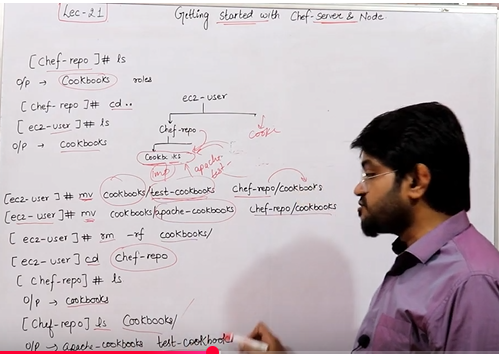 Lec-21
Getting started with Chef-Server & Node
[Chef-repo]# ls
O/P → Cookbooks roles
[Chef-repo]# cd..
[ec2-user]# ls
O/P → Cookbooks
ec2-user
Chef-repo
Cookbooks
imp
apache-
test-
[ec2-user]# mv cookbooks/test-cookbooks Chef-repo/cookbooks
[ec2-user]# mv cookbooks/apache-cookbooks Chef-repo/cookbooks
[ec2-user]# rm -rf cookbooks/
[ec2-user] cd Chef-repo
[Chef-repo]# ls
O/P → cookbooks
[Chef-repo] ls Cookbooks/
O/P → apache-cookbooks test-cookbooks